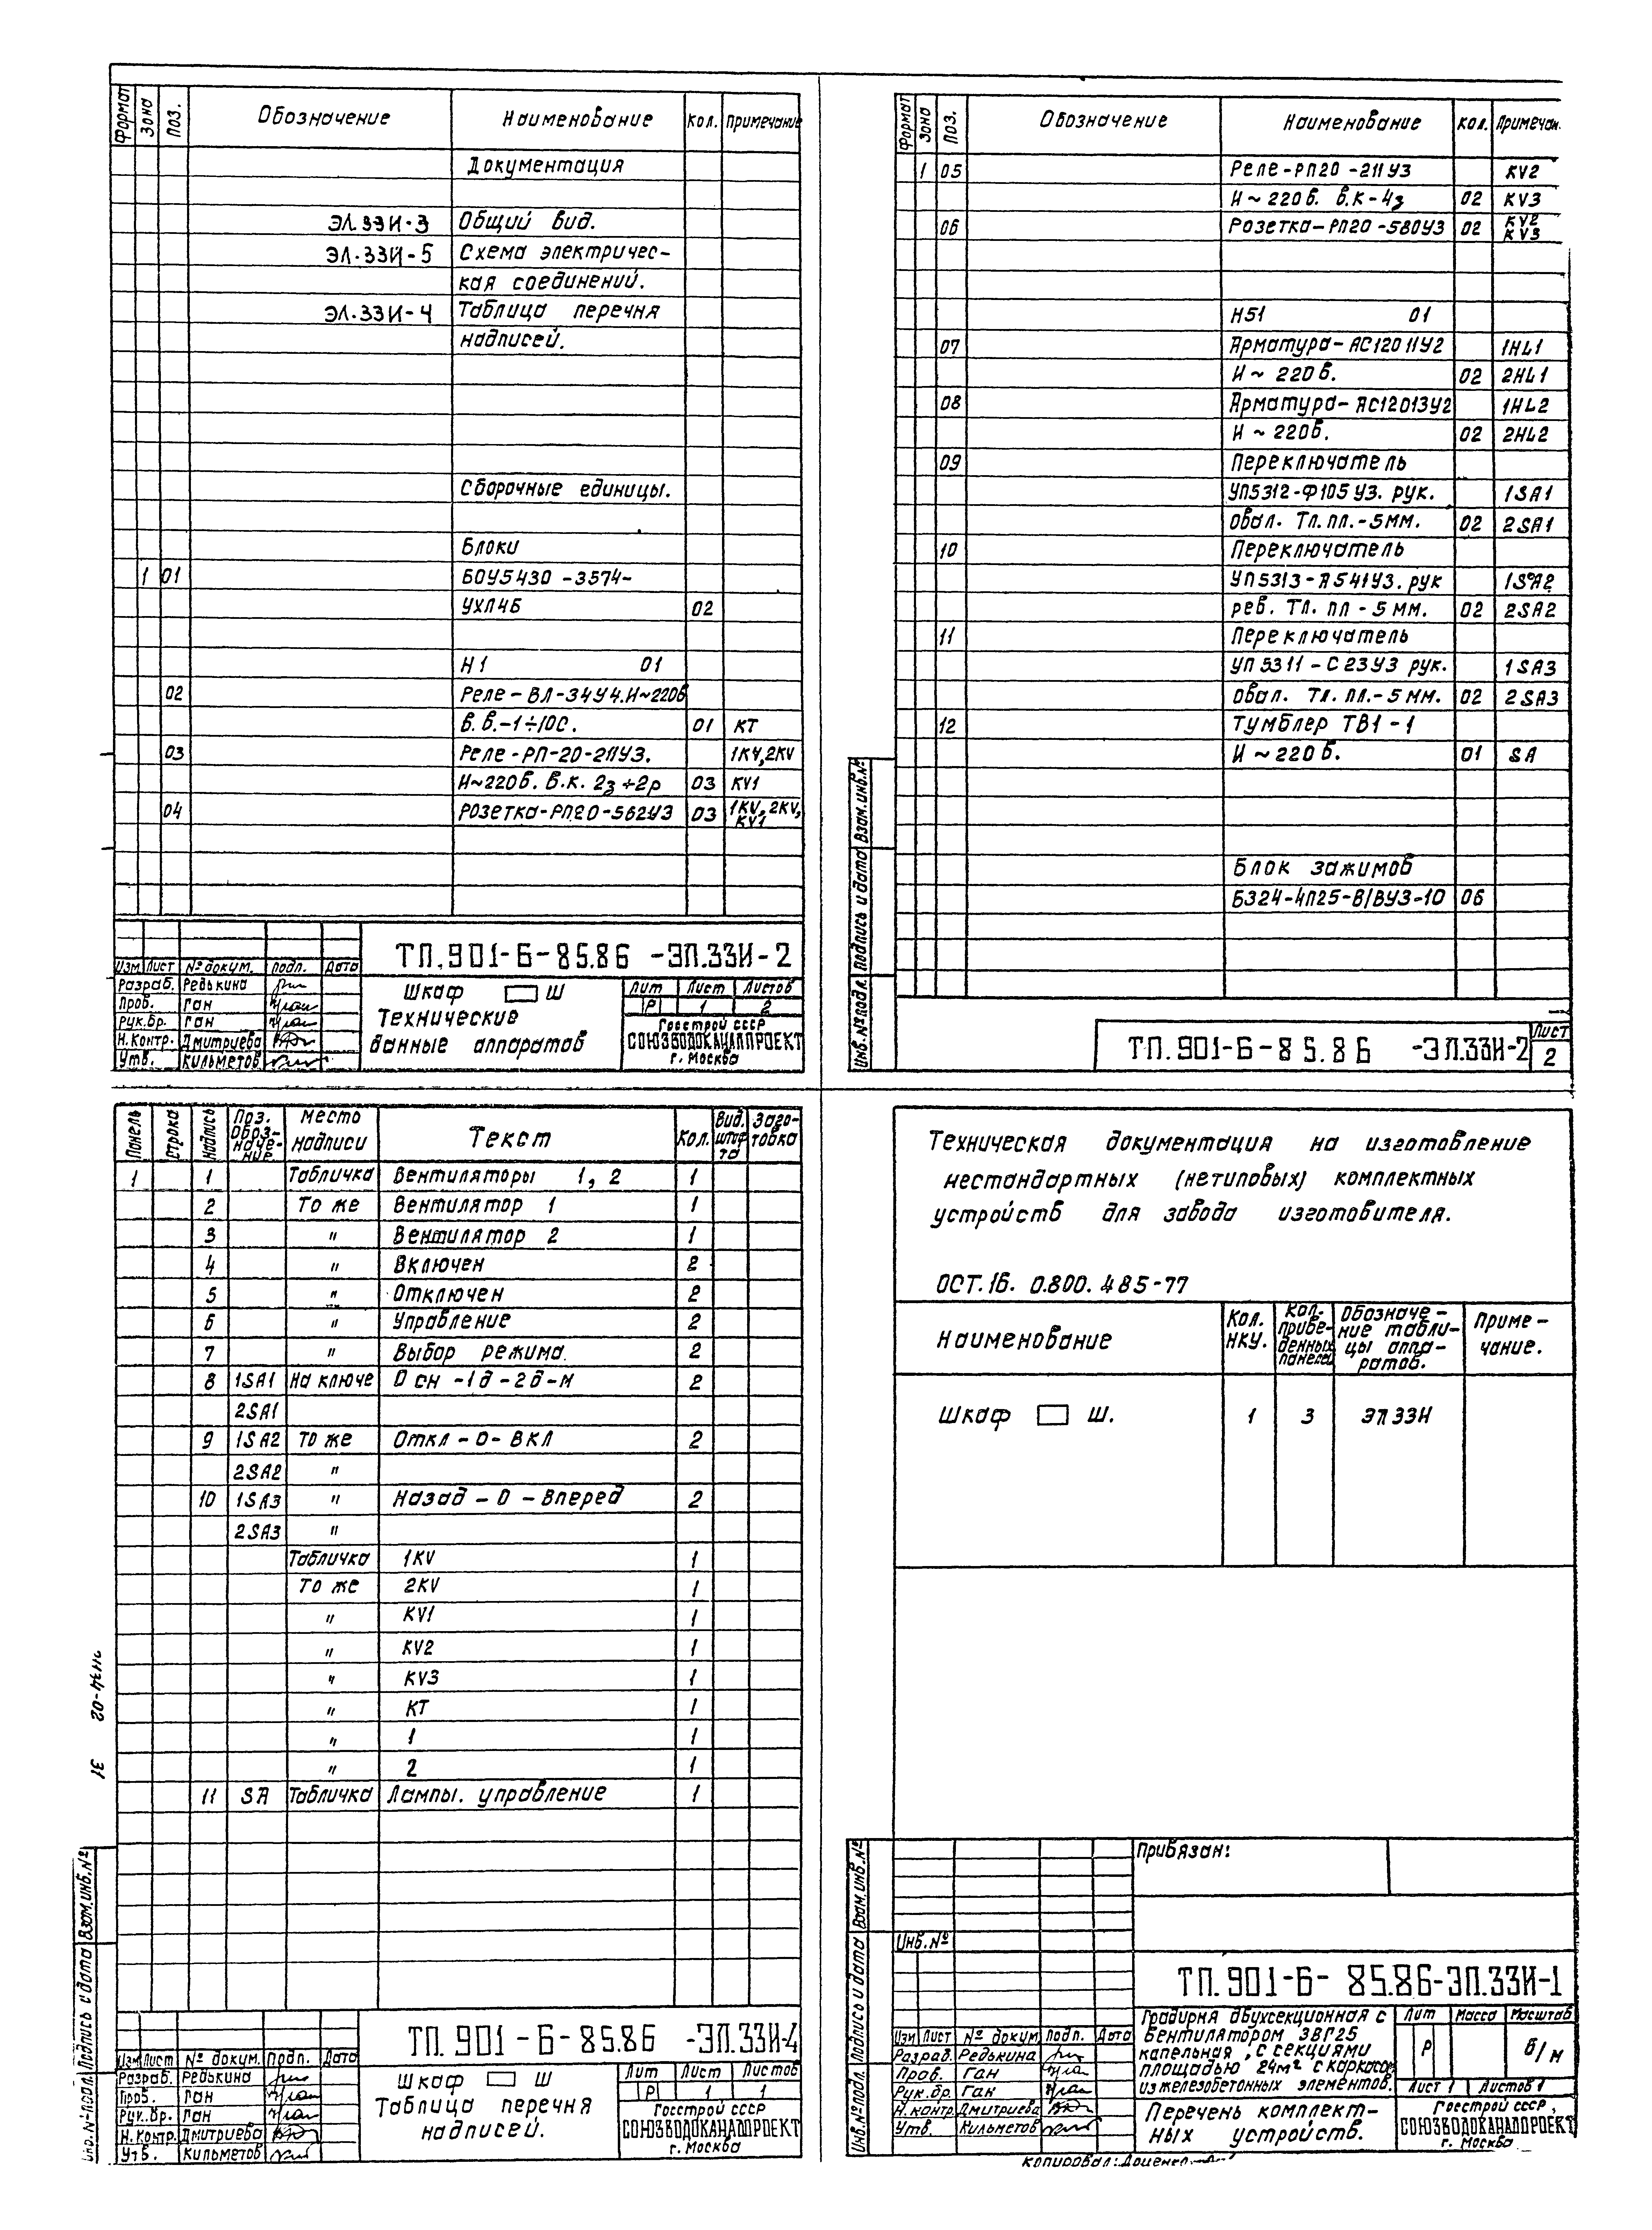 Формат Зона Поз. Обозначение Наименование Кол. Примечание
Документация
ЭЛ.33И-3 Общий вид.
ЭЛ.33И-5 Схема электричес-
кая соединений.
ЭЛ.33И-4 Таблица перечня
надписей.
Сборочные единицы.
Блоки
1 01 БОУ5430-3574-
УХЛ4Б 02
Н1 01
02 Реле-ВЛ-34У4.И~220в
В.в.-1÷10с. 01 КТ
03 Реле-РП-20-211УЗ. 1КV,2КV
И~220в. в.к. 2з÷2р 03 КV1
04 Розетка-РП20-562УЗ 03 1КV,2КV,
КV1
Изм Лист № докум. Подп. Дата
Разраб. Редькина
Пров. Ган
Рук.бр. Ган
Н.контр. Дмитриева
Утв. Кильметов
ТП.901-6-85.86 -ЭП.33И-2
Шкаф Ш
Технические
данные аппаратов
Лит Лист Листов
Р 1 2
Госстрой СССР
СОЮЗВОДОКАНАЛПРОЕКТ
г. Москва
Формат Зона Поз. Обозначение Наименование Кол. Примечан.
1 05 Реле-РП20-211УЗ КV2
И~220в. в.к-4з 02 КV3
06 Розетка-РП20-580УЗ 02 КV2
КV3
Н51 01
07 Арматура-АС12011У2 1HL1
И~220в. 02 2HL1
08 Арматура-АС12013У2 1HL2
И~220в. 02 2HL2
09 Переключатель
УП5312-Ф105УЗ. рук. 1SA1
овал. Тл.пл.-5мм. 02 2SA1
10 Переключатель
УП5313-А541УЗ. рук 1SA2
рев. Тл. пл-5мм. 02 2SA2
11 Переключатель
УП5311-С23УЗ рук. 1SA3
овал. Тл. пл.-5мм. 02 2SA3
12 Тумблер ТВ1-1
И~220в. 01 SA
Блок зажимов
БЗ24-4П25-В/ВУЗ-10 06
Инв.№подл. Подпись и дата Взам.инв.№
ТП.901-6-85.86 -ЭП.33И-2
Лист
2
Панель Строка Надпись Поз. Обозначение Место надписи Текст Кол. Вид шрифта Заготовка
1 1 Табличка Вентиляторы 1, 2 1
2 То же Вентилятор 1 1
3 " Вентилятор 2 1
4 " Включен 2
5 " Отключен 2
6 " Управление 2
7 " Выбор режима. 2
8 1SA1 На ключе Осн-1д-2д-М 2
2SA1
9 1SA2 То же Откл-0-ВКЛ 2
2SA2 "
10 1SA3 " Назад-0-Вперед 2
2SA3 "
Табличка 1KV 1
То же 2KV 1
" KV1 1
" KV2 1
" KV3 1
" КТ 1
" 1 1
" 2 1
11 SA Табличка Лампы. управление 1
31
Инв. № подл. Подпись и дата Взам.инв.№
Изм Лист № докум. Подп. Дата
Разраб. Редькина
Пров. Ган
Рук.бр. Ган
Н.контр. Дмитриева
Утв. Кильметов
ТП.901-6-85.86 -ЭП.33И-4
Шкаф Ш
Таблица перечня
надписей.
Лит Лист Листов
Р 1 1
Госстрой СССР
СОЮЗВОДОКАНАЛПРОЕКТ
г. Москва
Техническая документация на изготовление
нестандартных (нетиповых) комплектных
устройств для завода изготовителя.
ОСТ.16. 0.800.485-77
Наименование Кол. НКУ. Кол. приведенных панелей Обозначе-ние табли-цы аппа-ратов. Приме-чание.
Шкаф Ш. 1 3 ЭП33И
Привязан:
Инв.№
Инв.№подл. Подпись и дата Взам.инв.№
Изм Лист № докум. Подп. Дата
Разраб. Редькина
Пров. Ган
Рук.бр. Ган
Н.контр. Дмитриева
Утв. Кильметов
ТП.901-6-85.86-ЭП.33И-1
Градирня двухсекционная с
вентилятором 3ВГ25
капельная, с секциями
площадью 24м² с каркасом
из железобетонных элементов.
Лит Масса Масштаб
Р б/м
Лист 1 Листов 1
Перечень комплект-
ных устройств.
Госстрой СССР,
СОЮЗВОДОКАНАЛПРОЕКТ
г. Москва
Копировал: